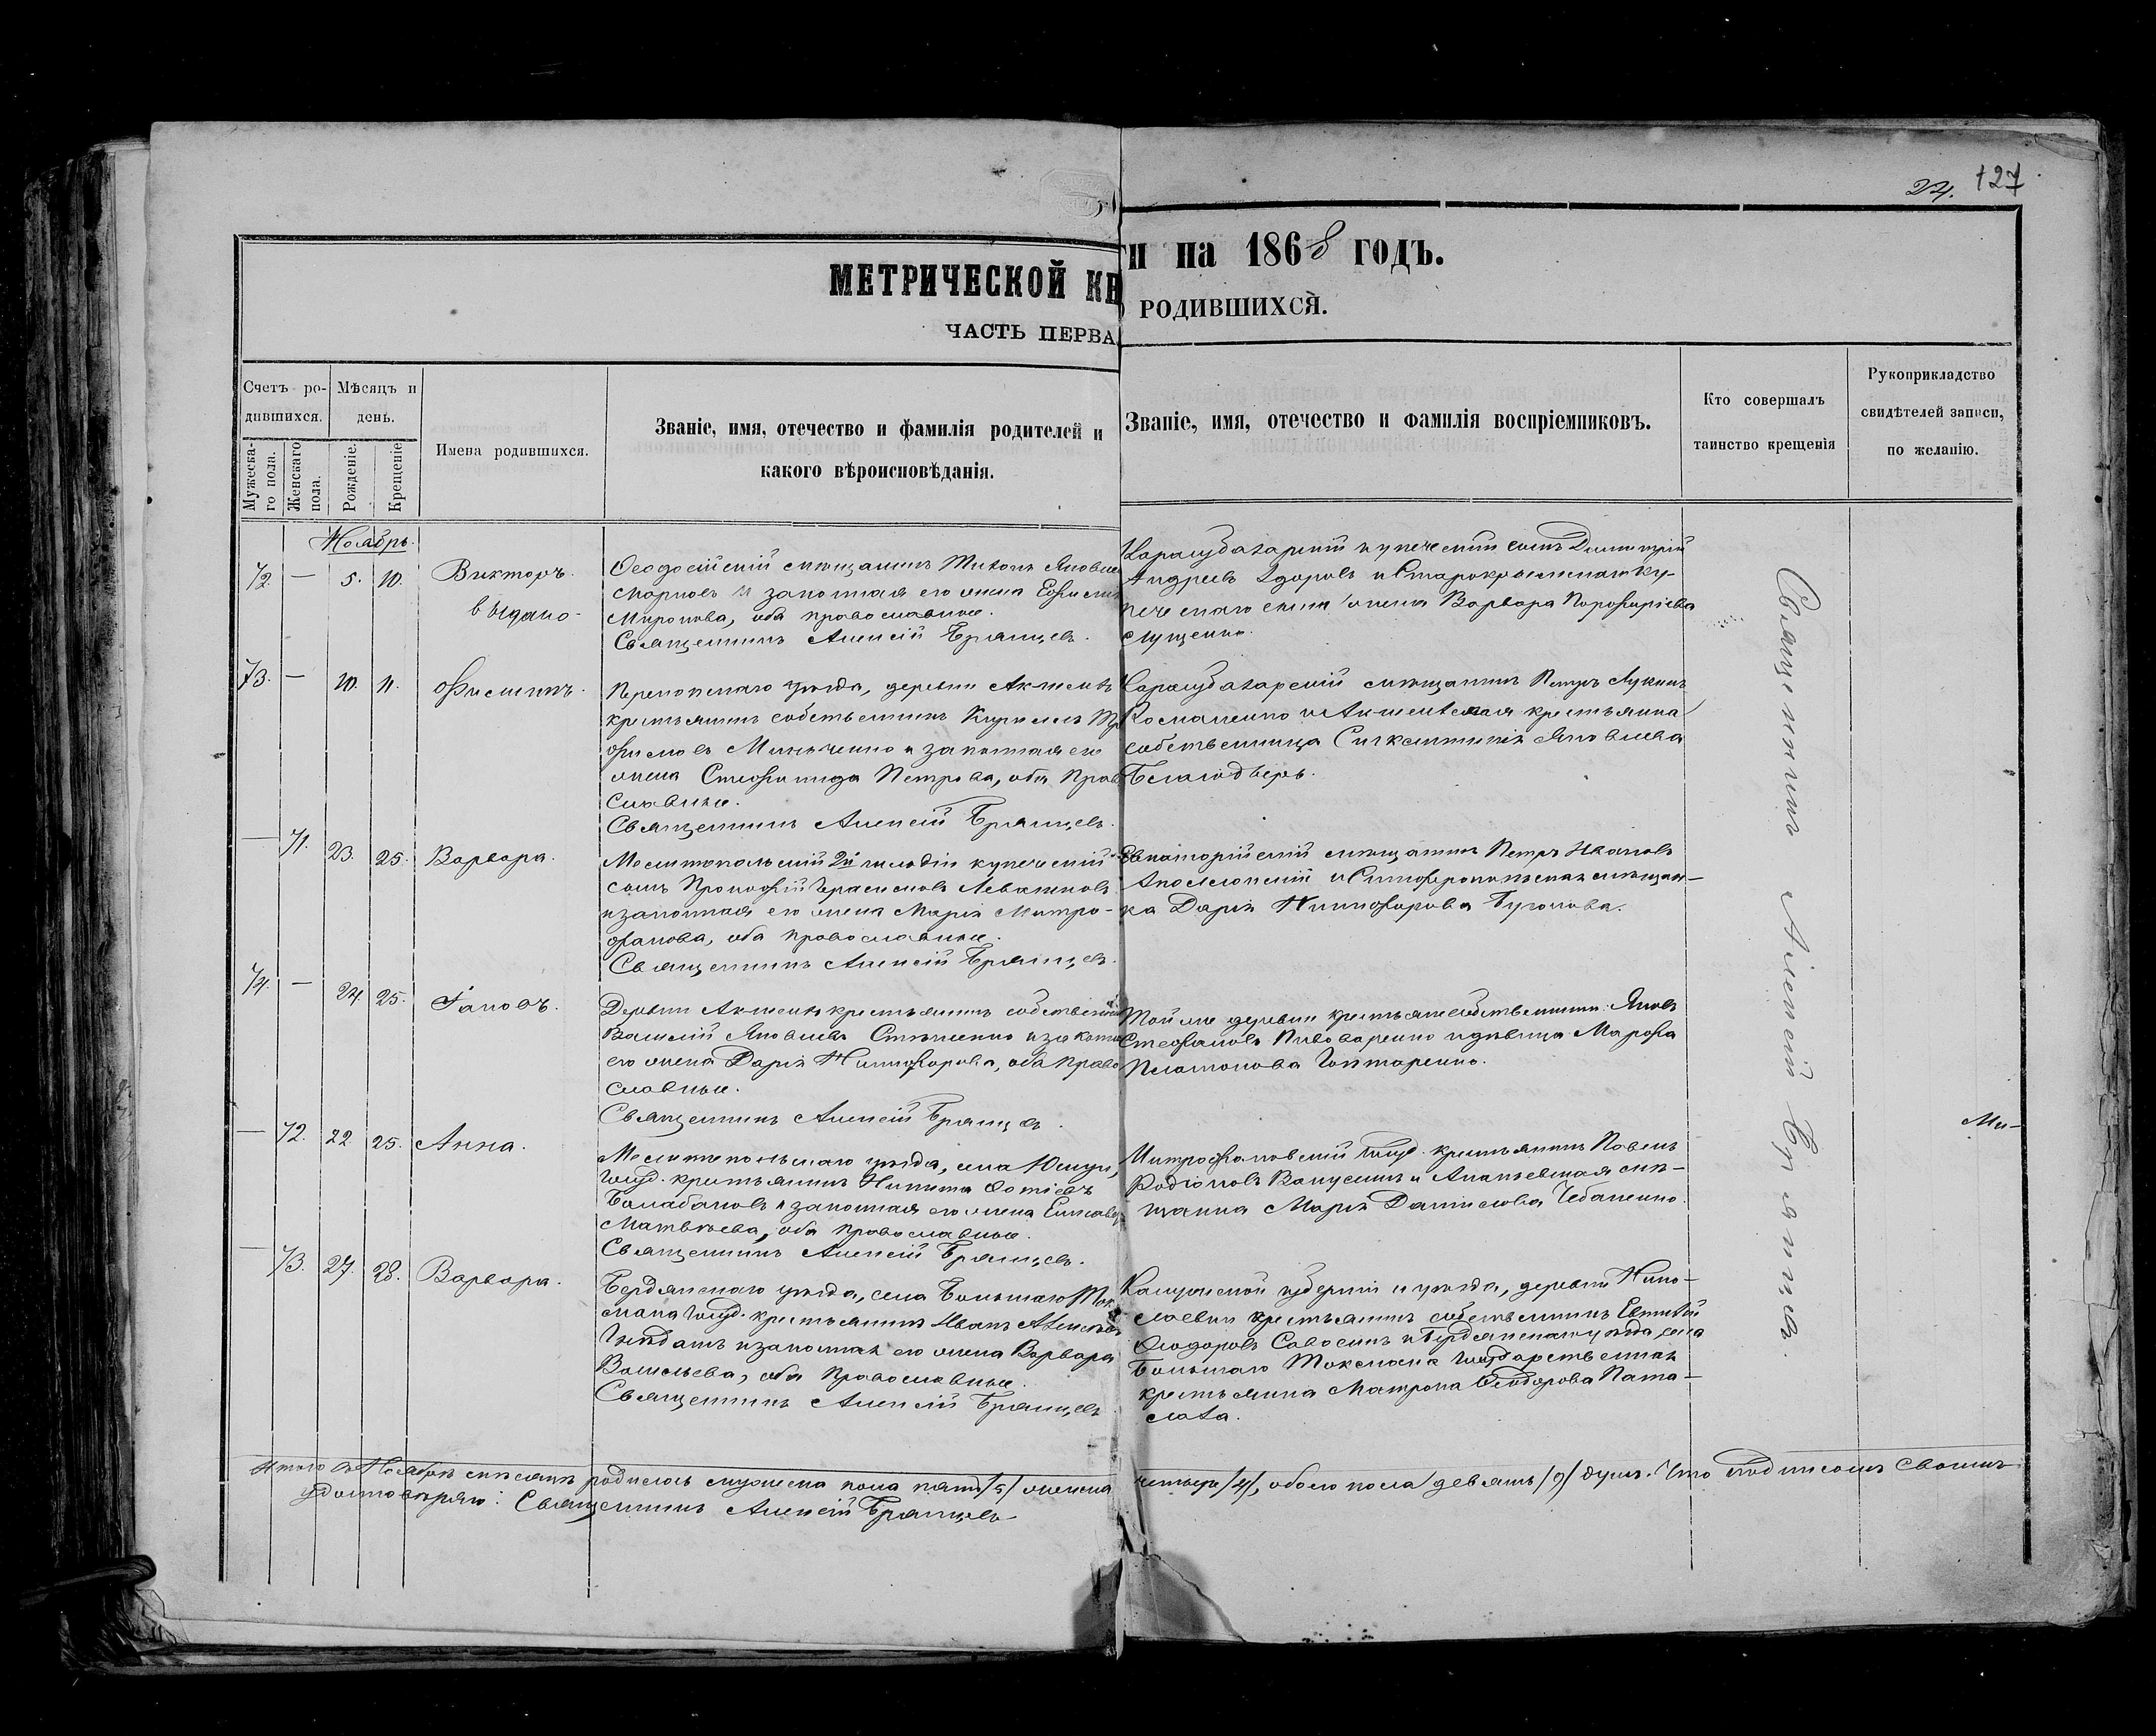 24. 127
МЕТРИЧЕСКОЙ КН
ГИ на 1868 ГОДЪ.
ЧАСТЬ ПЕРВА
РОДИВШИХСЯ.
Счетъ ро-
дившихся.
Мужеска-
го пола.
Женскаго
пола.
Мѣсяцъ и
день.
Рожденіе.
Крещеніе
Имена родившихся.
Званіе, имя, отечество и фамилія родителей и
какого вѣроисповѣданія.
Званіе, имя, отечество и фамилія воспріемниковъ.
Кто совершалъ
таинство крещенія
Рукоприкладство
свидѣтелей записи,
по желанію.
Ноябрь.
72. — 5. 10. Викторъ.
выдано
Ѳеодосійскій мѣщанинъ Тихонъ Яковлевъ
и законная его жена
Миронова, оба православные.
Священникъ Алексій Брянцев.
Карасубазарскій купеческій сынъ Димитрій
Андреевъ Здоровъ и Старокрымскаго ку-
печескаго сына жена Варвара Порфиріева
73. — 10. 11. Филиппъ.
Перекопскаго уѣзда, деревни
крестьянинъ собственникъ Кириллъ Тр
офимовъ и законная его
жена Стефанида Петрова, оба право
славные.
Священникъ Алексій Брянцевъ.
Карасубазарскій мѣщанинъ Петръ Лукинъ
Космаленко и крестьянка
собственница Синклитикія Яковлева
— 71. 23. 25. Варвара.
Мелитопольскій 2й гильдіи купеческій
сынъ Прокофій Герасимовъ
и законная его жена Марія Митро-
фанова, оба православные.
Священникъ Алексій Брянцевъ.
Евпаторійскій мѣщанинъ Петръ Ивановъ
и Симферопольская мѣщан-
ка Дарія Никифорова
74. — 24. 25. Іаковъ.
Деревни крестьянинъ собственникъ
Василій Яковлевъ и законная
его жена Дарія Никифорова, оба право
славные.
Священникъ Алексій Брянцевъ.
Той же деревни крестьяне собственники: Яковъ
Стефановъ Пивоваренко и дѣвица Марфа
Платонова Гонтаренко.
— 72. 22. 25. Анна.
Мелитопольскаго уѣзда, села
Госуд. крестьянинъ Никита Фотіевъ
Балабановъ и законная его жена Елисавета
Матвѣева, оба православные.
Священникъ Алексій Брянцевъ.
Митрофановскій Госуд. крестьянинъ Павелъ
Родіоновъ и Ананьевская мѣ-
щанка Марія Данилова Чебаненко.
— 73. 27. 28. Варвара.
Бердянскаго уѣзда, села Большаго Ток
мака Госуд. крестьянинъ Иванъ Алексѣевъ
и законная его жена Варвара
Васильева, оба православные.
Священникъ Алексій Брянцевъ.
Калужской губерніи и уѣзда, деревни Нико-
лаевки крестьянинъ собственникъ Евтихій
Ѳеодоровъ Савосинъ и Бердянскаго уѣзда села
Большаго Токмака Государственная
крестьянка Матрона Ѳеодорова
Священникъ Алексій Брянцевъ.
Итого въ Ноябрѣ мѣсяцѣ родилось мужеска пола пять /5/ женска четыре /4/, обоего пола девять /9/ душъ. Что подписомъ своимъ
удостовѣряю: Священникъ Алексій Брянцевъ